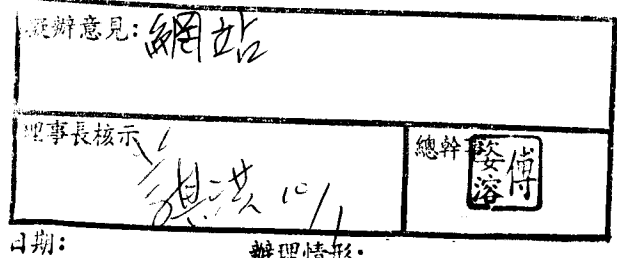 擬辦意見：網站
理事長核示
10/1
總幹事
傅姿溶
日期：
辦理情形：